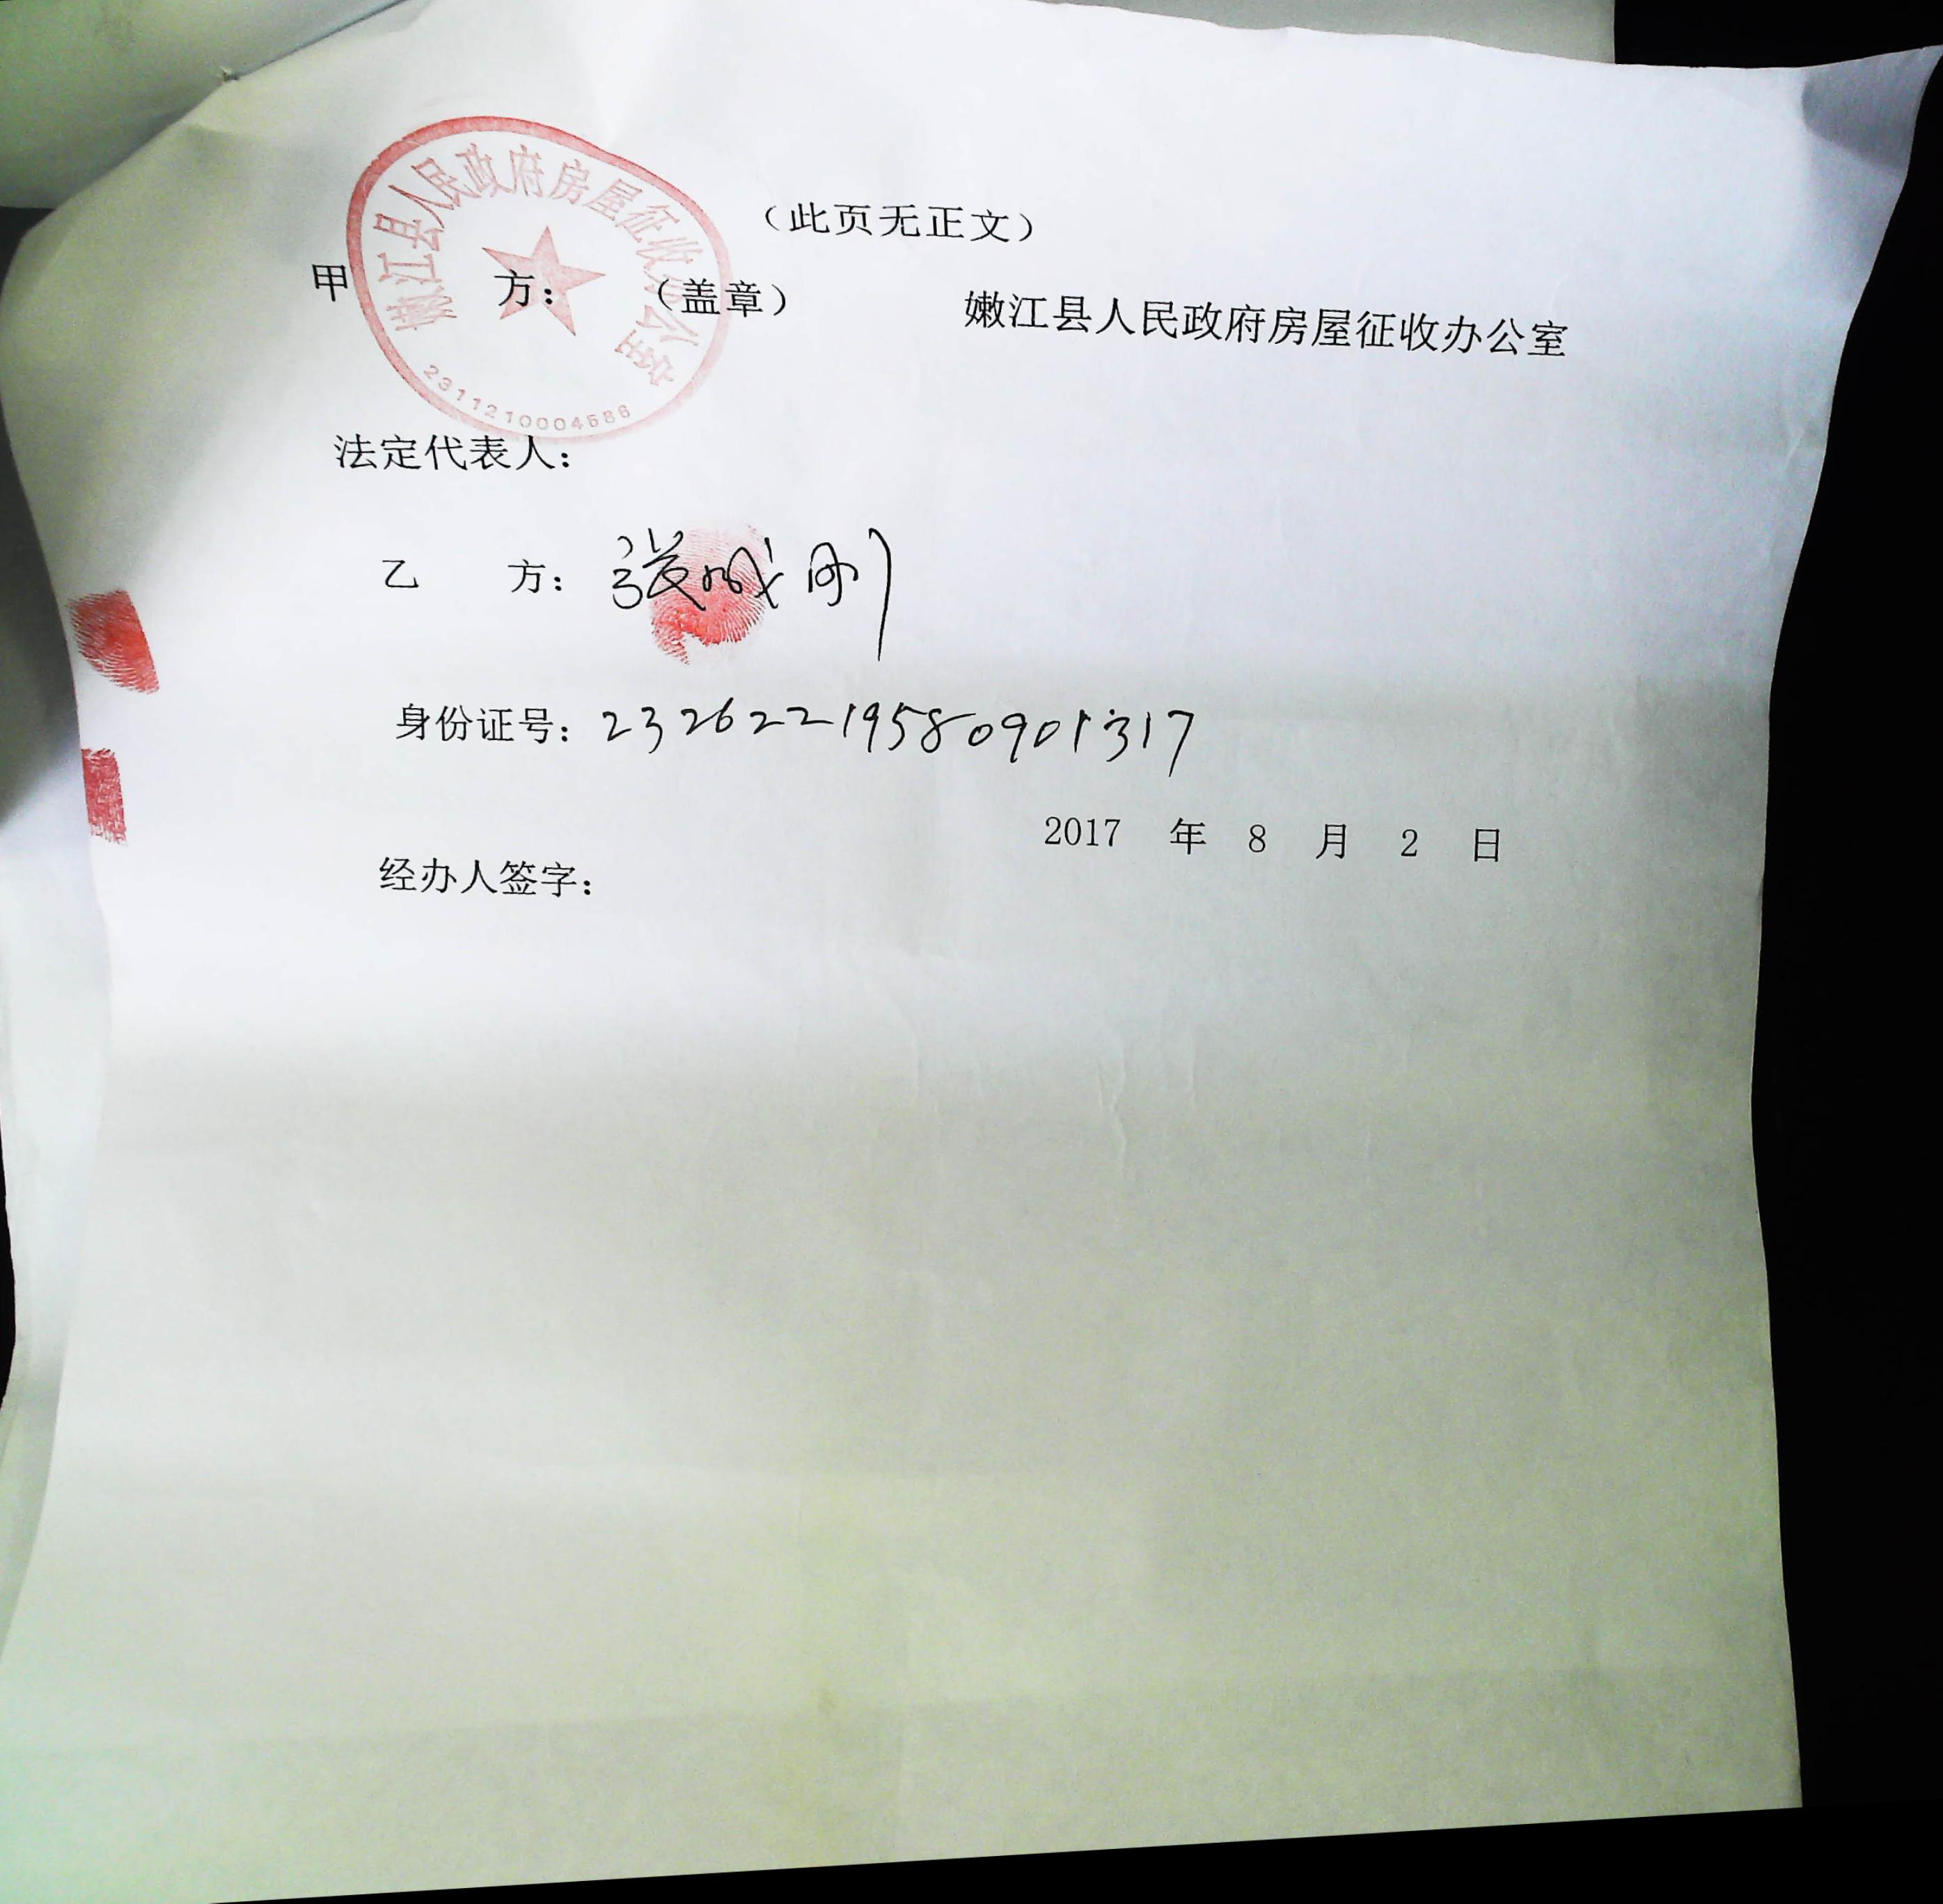 嫩江县人民政府房屋征收办公室
2311210004586
（此页无正文）
甲 方：（盖章） 嫩江县人民政府房屋征收办公室
法定代表人：
乙 方：张成刚
身份证号：23262219580901317
2017 年 8 月 2 日
经办人签字：